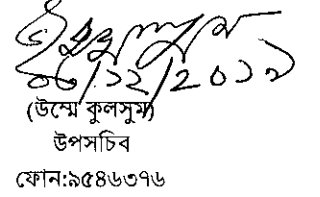 ০৮/১২/২০১৯
(উম্মে কুলসুম)
উপসচিব
ফোন:৯৫৪৬৩৭৬